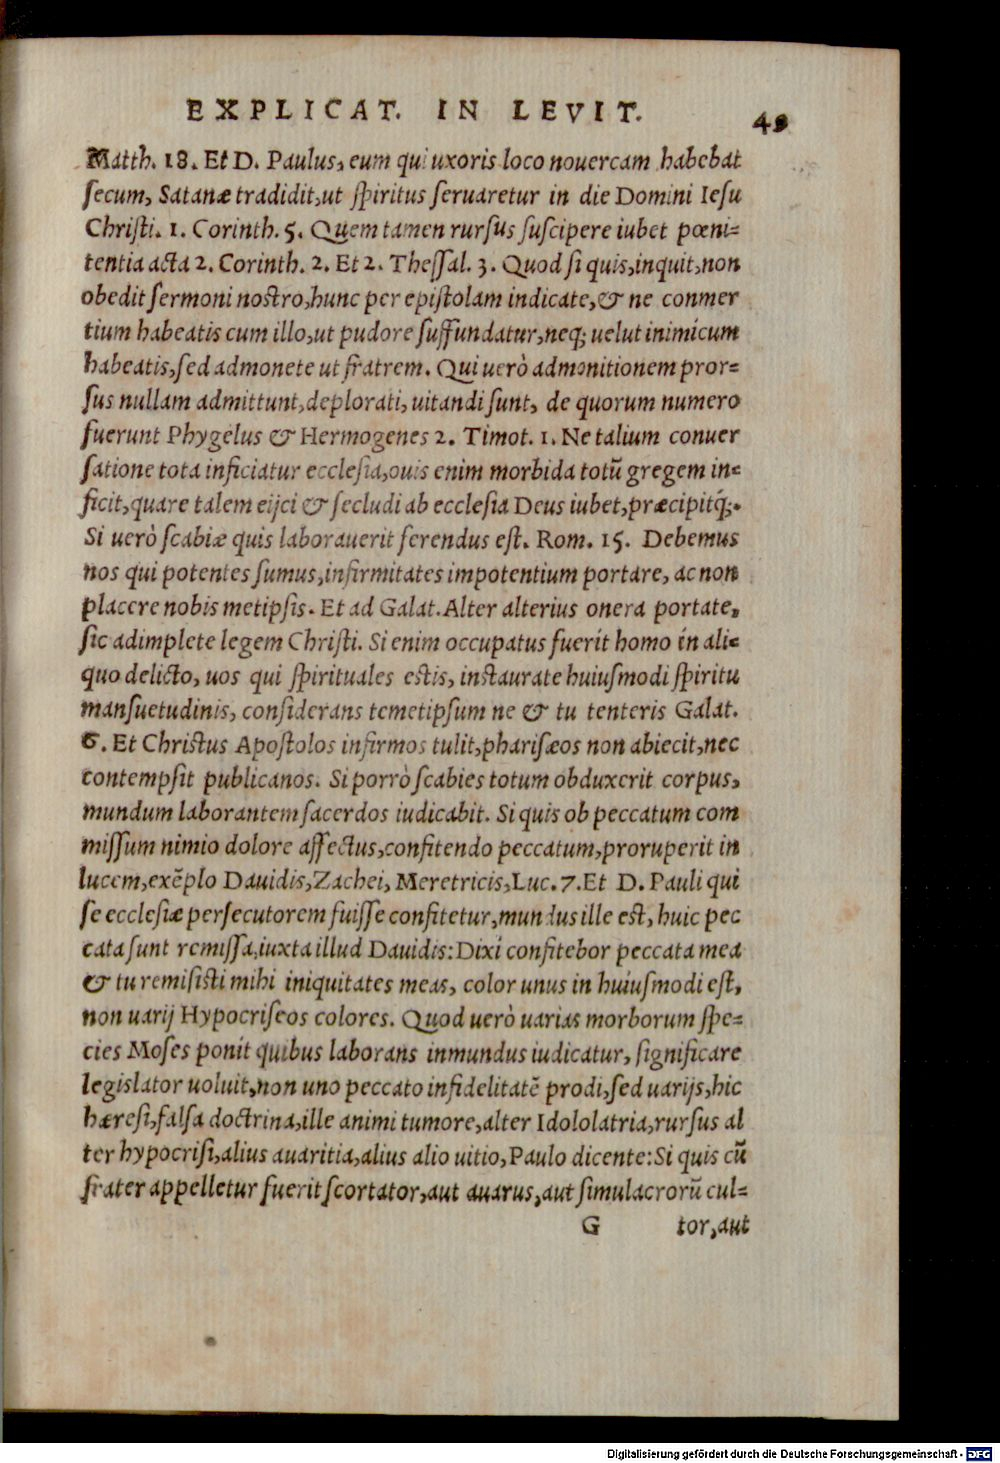 EXPLICAT. IN LEVIT. 49
Matth. 18. Et D. Paulus, eum qui uxoris loco nouercam habebat
ſecum, Satanæ tradidit, ut ſpiritus ſeruaretur in die Domini Ieſu
Chriſti. 1. Corinth. 5. Quem tamen rurſus ſuſcipere iubet pœni=
tentia acta 2. Corinth. 2. Et 2. Theſſal. 3. Quod ſi quis, inquit, non
obedit ſermoni noſtro, hunc per epiſtolam indicate, & ne conmer
tium habeatis cum illo, ut pudore ſuffundatur, neq; uelut inimicum
habeatis, ſed admonete ut fratrem. Qui uerò admonitionem pror=
ſus nullam admittunt, deplorati, uitandi ſunt, de quorum numero
fuerunt Phygelus & Hermogenes 2. Timot. 1. Ne talium conuer
ſatione tota inficiatur eccleſia, ouis enim morbida totũ gregem in=
ficit, quare talem eijci & ſecludi ab eccleſia Deus iubet, præcipitq́;.
Si uerò ſcabiæ quis laborauerit ferendus eſt. Rom. 15. Debemus
nos qui potentes ſumus, infirmitates impotentium portare, ac non
placere nobis metipſis. Et ad Galat. Alter alterius onera portate,
ſic adimplete legem Chriſti. Si enim occupatus fuerit homo in ali=
quo delicto, uos qui ſpirituales eſtis, inſtaurate huiuſmodi ſpiritu
manſuetudinis, conſiderans temetipſum ne & tu tenteris Galat.
6. Et Chriſtus Apoſtolos infirmos tulit, phariſæos non abiecit, nec
contempſit publicanos. Si porrò ſcabies totum obduxerit corpus,
mundum laborantem ſacerdos iudicabit. Si quis ob peccatum com
miſſum nimio dolore affectus, confitendo peccatum, proruperit in
lucem, exẽplo Dauidis, Zachei, Meretricis, Luc. 7. Et D. Pauli qui
ſe eccleſiæ perſecutorem fuiſſe confitetur, mundus ille eſt, huic pec
cata ſunt remiſſa, iuxta illud Dauidis: Dixi confitebor peccata mea
& tu remiſiſti mihi iniquitates meas, color unus in huiuſmodi eſt,
non uarij Hypocriſeos colores. Quod uerò uarias morborum ſpe=
cies Moſes ponit quibus laborans inmundus iudicatur, ſignificare
legislator uoluit, non uno peccato infidelitatẽ prodi, ſed uarijs, hic
hæreſi, falſa doctrina, ille animi tumore, alter Idololatria, rurſus al
ter hypocriſi, alius auaritia, alius alio uitio, Paulo dicente: Si quis cũ
frater appelletur fuerit ſcortator, aut auarus, aut ſimulacrorũ cul=
G tor, aut
Digitalisierung gefördert durch die Deutsche Forschungsgemeinschaft - DFG